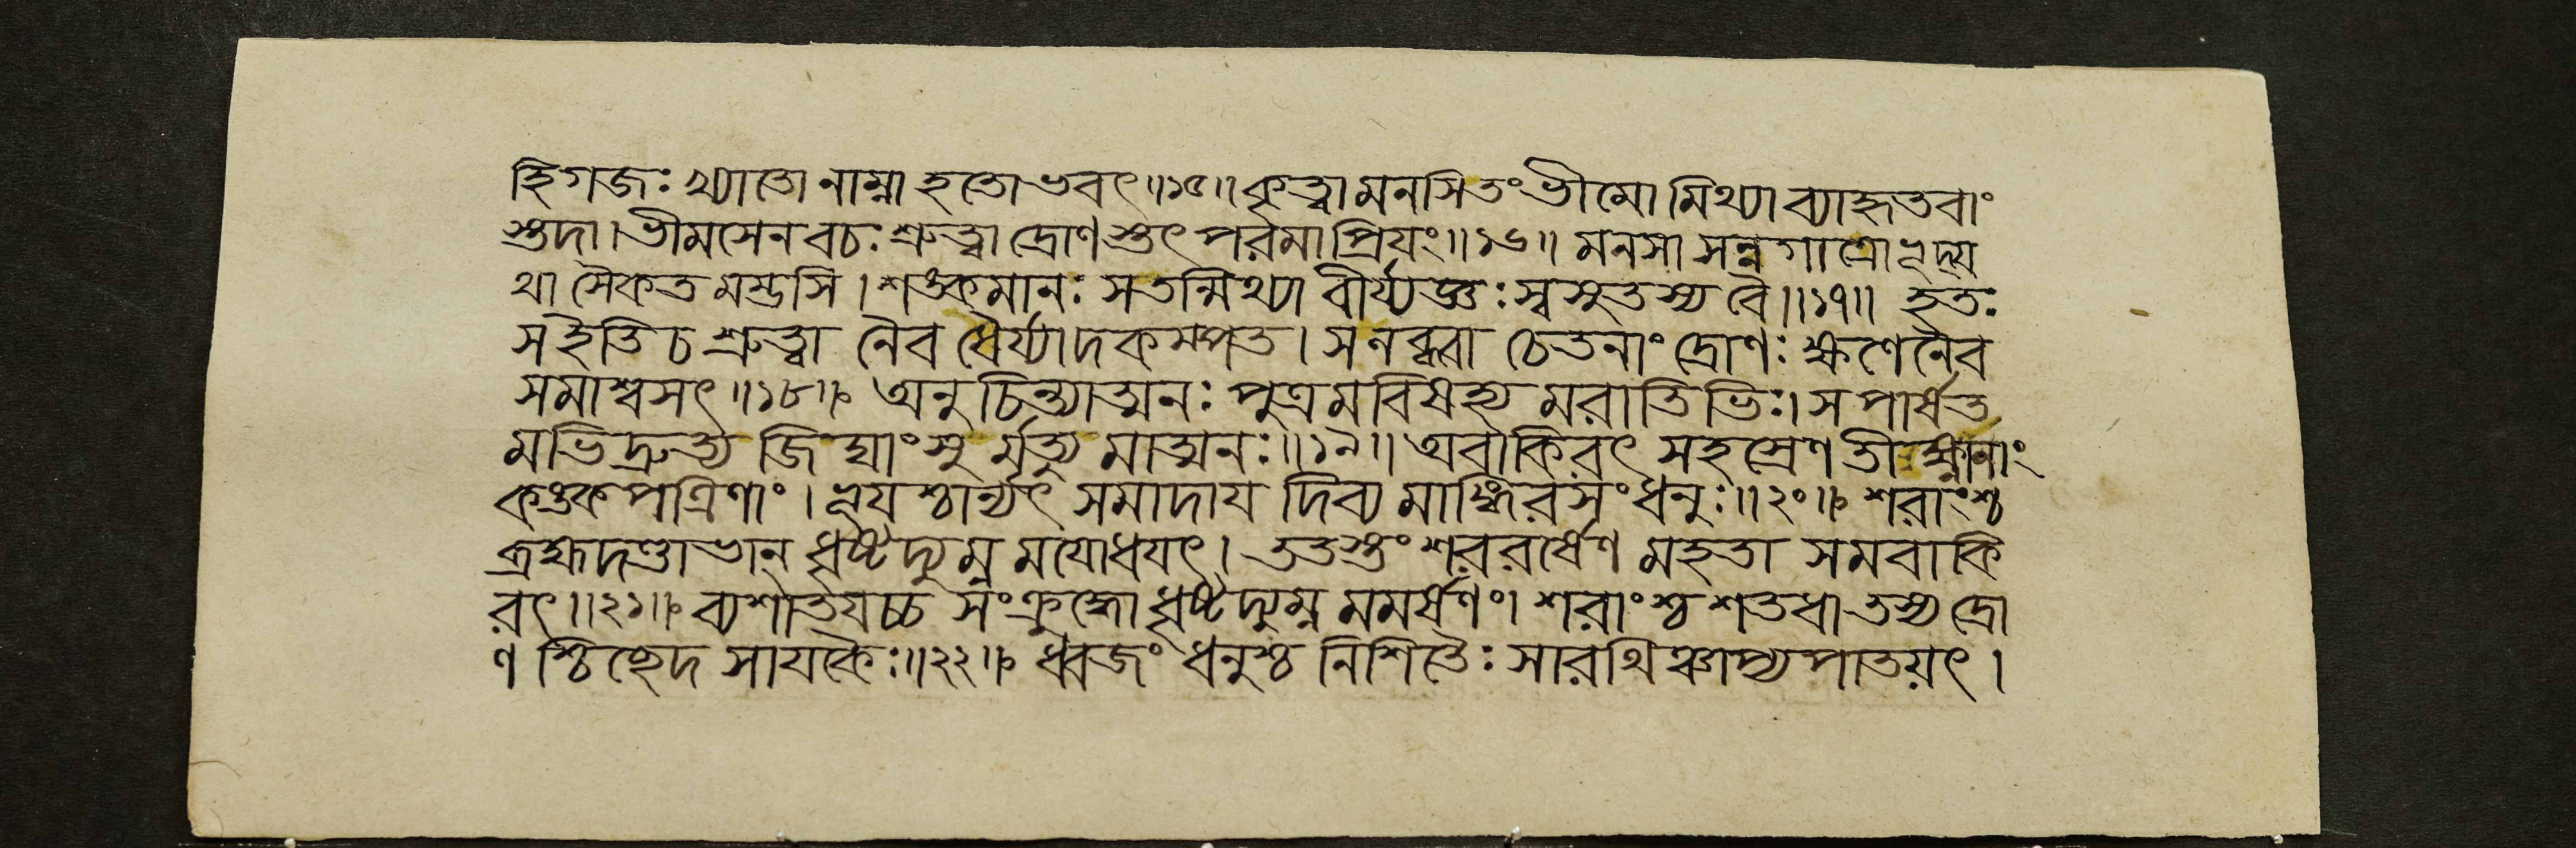 হি গজঃ খ্যাতো নাম্না হতোভবৎ॥১৫॥ কৃত্বা মনসি তং ভীমো মিথ্যা ব্যাহৃতবাং
স্তদা। ভীমসেন বচঃ শ্রুত্বা দ্রোণস্তৎ পরমাপ্রিয়ং॥১৬॥ মনসা সন্নগাত্রোভূদ্য
থা সৈকত মম্ভসি। শঙ্কমানঃ স তন্মিথ্যা বীর্য্যজ্ঞঃ স্বসুতস্য বৈ॥১৭॥ হতঃ
স ইতি চ শ্রুত্বা নৈব ধৈর্য্যাদকম্পত। স লব্ধ্বা চেতনাং দ্রোণঃ ক্ষণেনৈব
সমাশ্বসৎ॥১৮॥ অনুচিন্ত্যাত্মনঃ পুত্রমবিষহ্য মরাতিভিঃ। স পার্ষত
মভিদ্রুত্য জিঘাংসু র্মৃত্যু মাত্মনঃ॥১৯॥ অবাকিরৎ সহস্রেণ তীক্ষ্ণানাং
কঙ্কপত্রিণাং। ভূয়শ্চান্যৎ সমাদায় দিব্য মাঙ্গিরসং ধনুঃ॥২০॥ শরাংশ্চ
ব্রহ্মদণ্ডাভান্ ধৃষ্টদ্যুম্ন মযোধয়ৎ। ততস্তং শরবর্ষেণ মহতা সমবাকি
রৎ॥২১॥ ব্যশাতয়চ্চ সংক্রুদ্ধো ধৃষ্টদ্যুম্ন মমর্ষণং। শরাংশ্চ শতধা তস্য দ্রো
ণ শ্চিচ্ছেদ সায়কৈঃ॥২২॥ ধ্বজং ধনুশ্চ নিশিতৈঃ সারথিঞ্চাপ্যপাতয়ৎ।